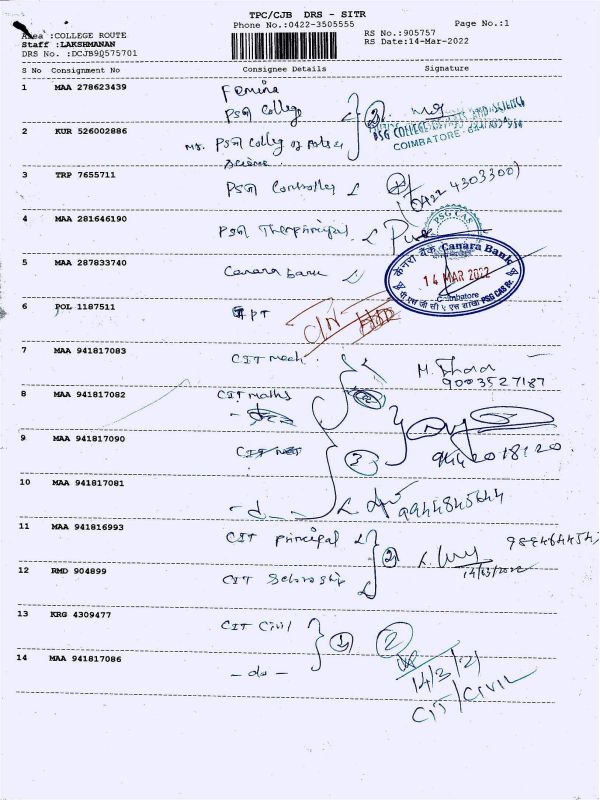 TPC/CJB DRS - SITR
Phone No.:0422-3505555
Page No.:1
Area :COLLEGE ROUTE
Staff :LAKSHMANAN
DRS No. :DCJB90575701
RS No.:905757
RS Date:14-Mar-2022
S No Consignment No Consignee Details Signature
1 MAA 278623439 Femina
PSG College
2 KUR 526002886 PSG College of Arts &
Science
PSG COLLEGE ARTS AND SCIENCE
COIMBATORE
3 TRP 7655711 PSG Controller
(0422 4303300)
4 MAA 281646190 PSG The principal
PSG CAS
5 MAA 287833740 Canara bank
केनरा बैंक Canara Bank
14 MAR 2022
Coimbatore
PSG CAS Br.
6 POL 1187511 GPT
7 MAA 941817083 CIT mech
9003527187
8 MAA 941817082 CIT maths
9 MAA 941817090 CIT
3
9442018120
10 MAA 941817081 - do -
9944845644
11 MAA 941816993 CIT principal
2
14/03/2022
12 RMD 904899 CIT
13 KRG 4309477 CIT Civil
1 2
14 MAA 941817086 - do -
14/3/21
CIT/CIVIL